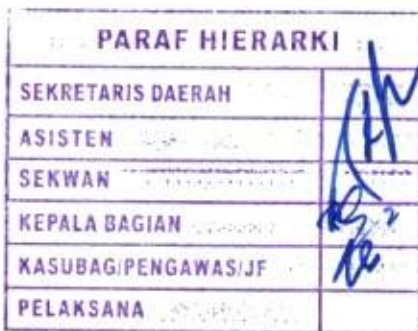 PARAF HIERARKI
SEKRETARIS DAERAH
ASISTEN
SEKWAN
KEPALA BAGIAN
KASUBAG/PENGAWAS/JF
PELAKSANA